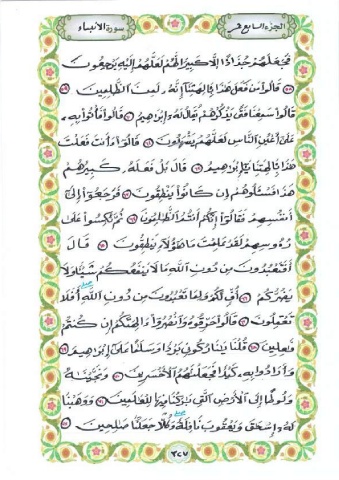 الجزء السابع عشر
سورة الأنبياء
فجعلهم جذاذا إلا كبيرا لهم لعلهم إليه يرجعون
٥٨ قالوا من فعل هذا بآلهتنا إنه لمن الظالمين ٥٩
قالوا سمعنا فتى يذكرهم يقال له إبراهيم ٦٠ قالوا فأتوا به
على أعين الناس لعلهم يشهدون ٦١ قالوا ءأنت فعلت
هذا بآلهتنا يإبراهيم ٦٢ قال بل فعله كبيرهم
هذا فسئلوهم إن كانوا ينطقون ٦٣ فرجعوا إلى
أنفسهم فقالوا إنكم أنتم الظالمون ٦٤ ثم نكسوا على
رءوسهم لقد علمت ما هؤلاء ينطقون ٦٥ قال
أفتعبدون من دون الله ما لا ينفعكم شيئا ولا
يضركم ٦٦ أف لكم ولما تعبدون من دون الله أفلا
تعقلون ٦٧ قالوا حرقوه وانصروا ءالهتكم إن كنتم
فاعلين ٦٨ قلنا ينار كوني بردا وسلاما على إبراهيم ٦٩
وأرادوا به كيدا فجعلناهم الأخسرين ٧٠ ونجيناه
ولوطا إلى الأرض التي باركنا فيها للعالمين ٧١ ووهبنا
له إسحاق ويعقوب نافلة وكلا جعلنا صالحين ٧٢
٣٢٧